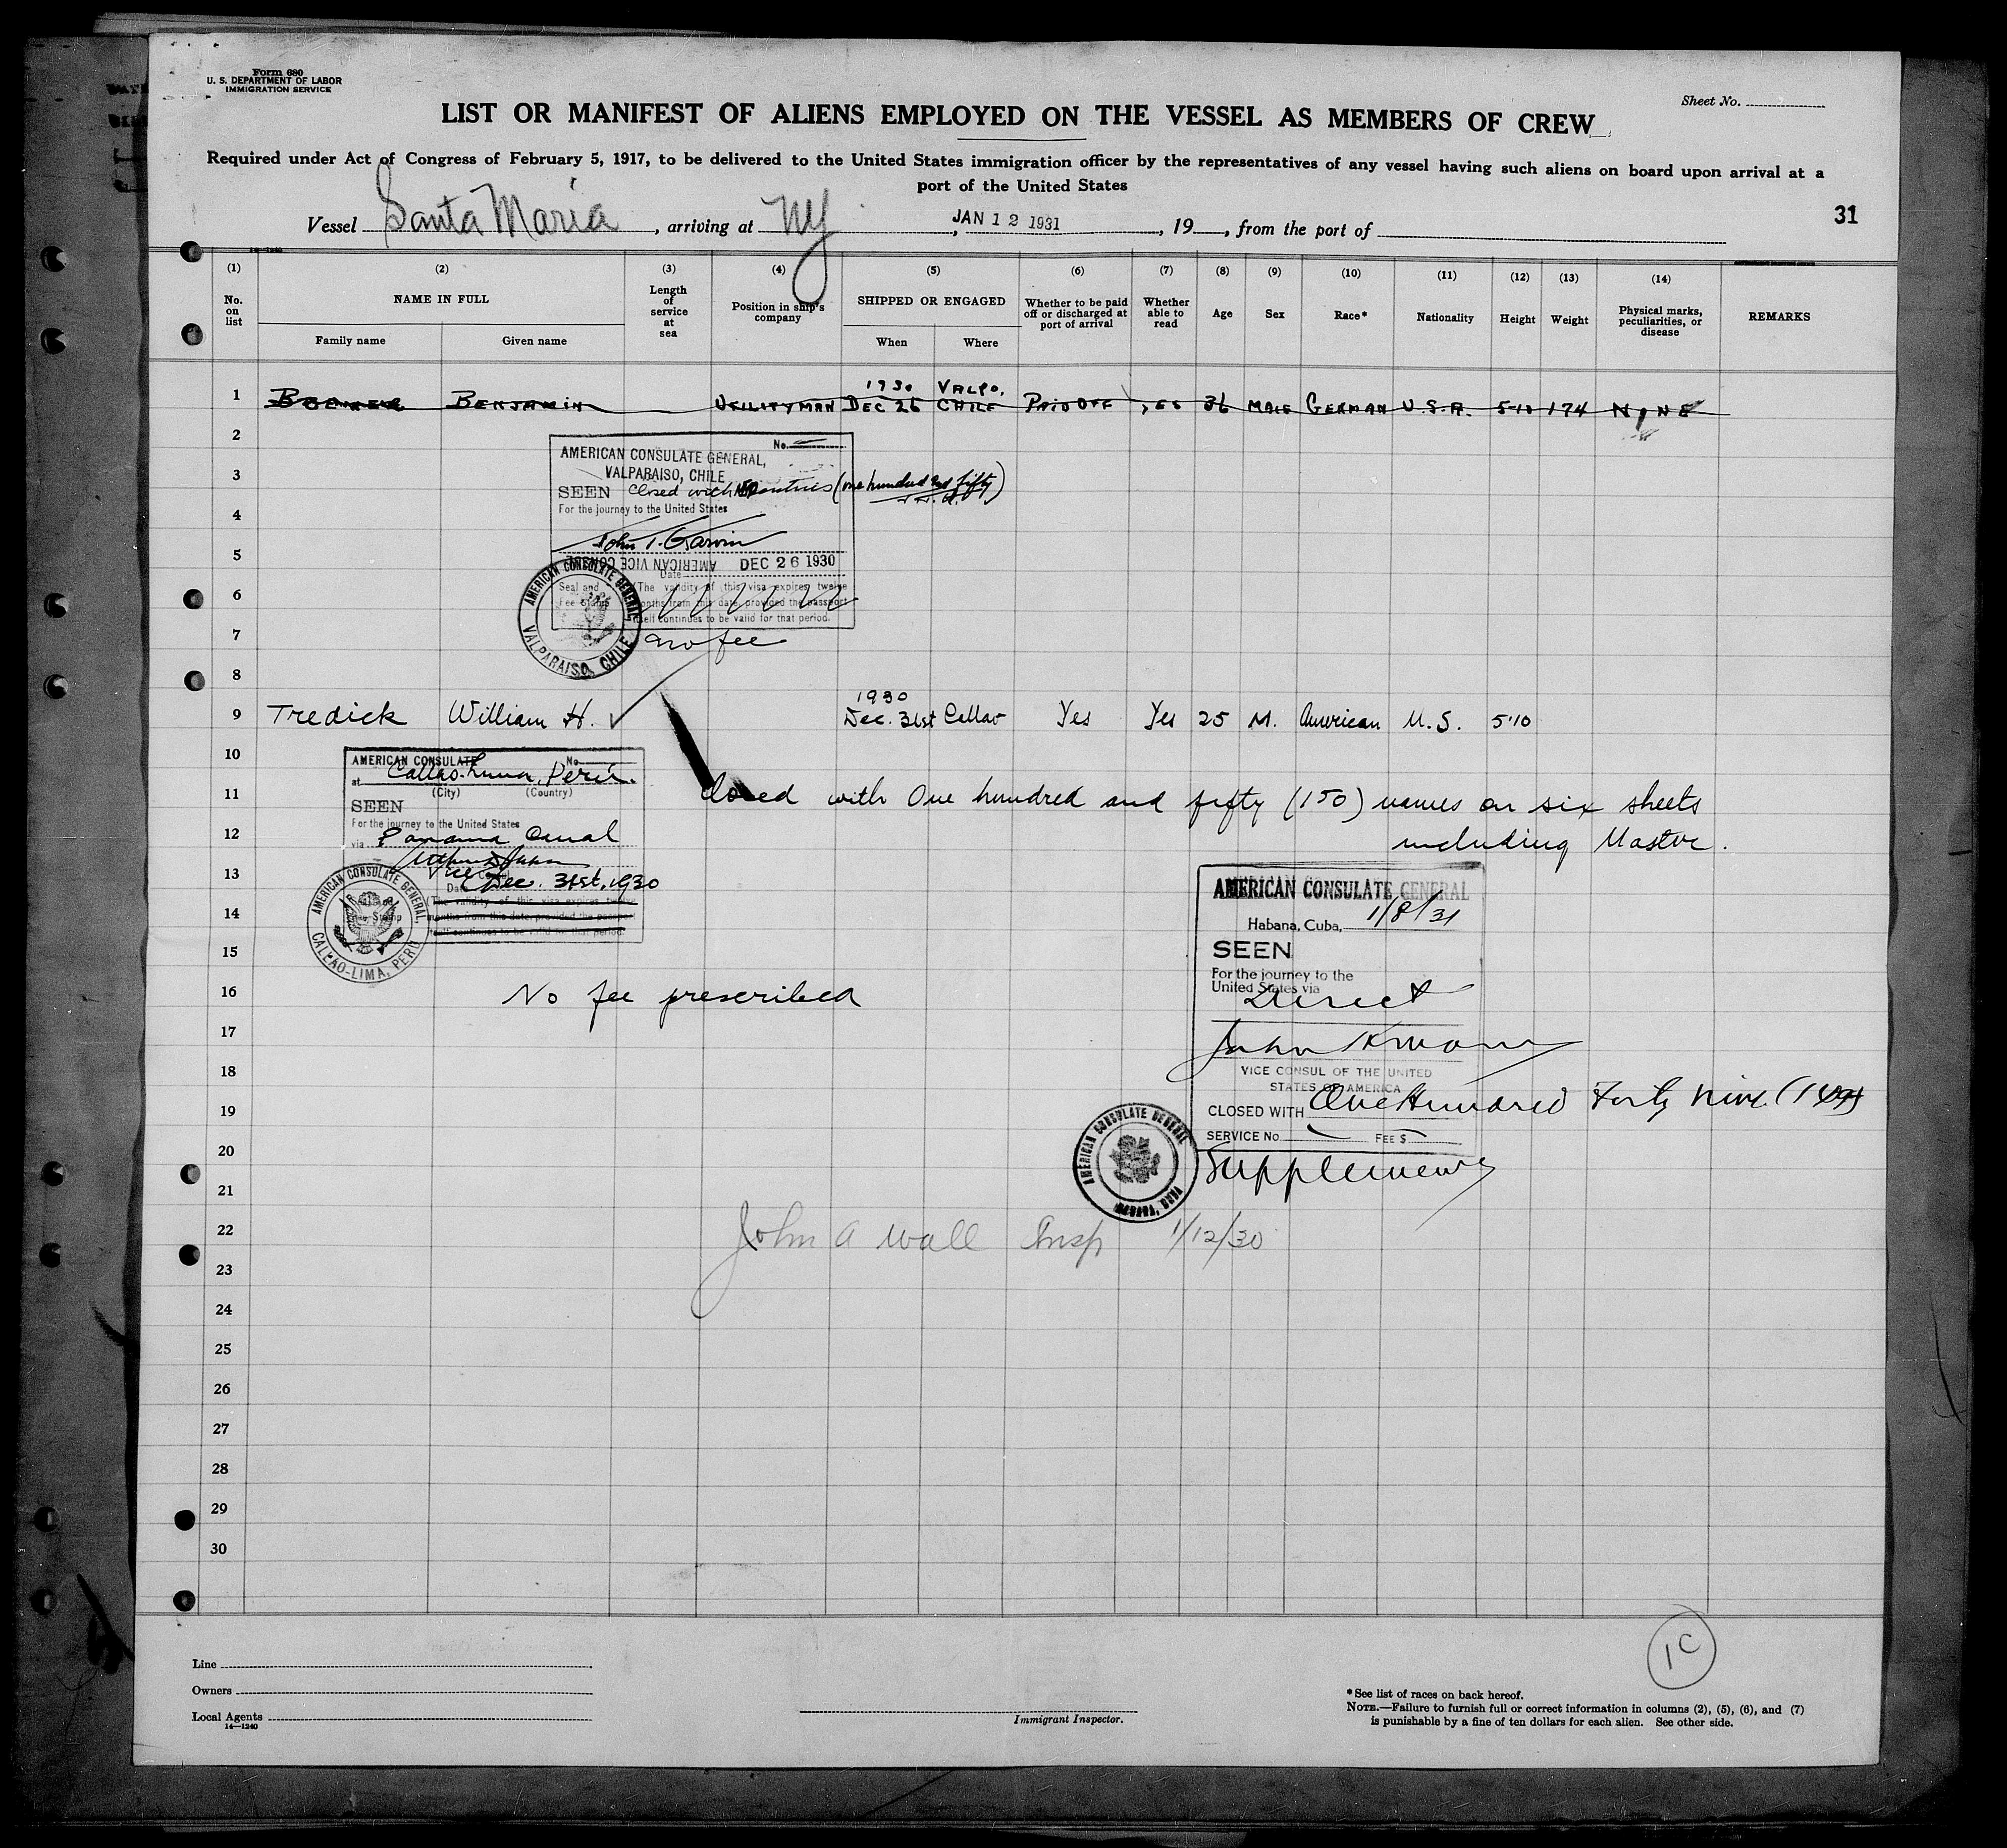 Form 680
U. S. DEPARTMENT OF LABOR
IMMIGRATION SERVICE
Sheet No.
LIST OR MANIFEST OF ALIENS EMPLOYED ON THE VESSEL AS MEMBERS OF CREW
Required under Act of Congress of February 5, 1917, to be delivered to the United States immigration officer by the representatives of any vessel having such aliens on board upon arrival at a
port of the United States
Vessel Santa Maria, arriving at NY, JAN 12 1931, 19, from the port of
31
(1) (2) (3) (4) (5) (6) (7) (8) (9) (10) (11) (12) (13) (14)
No. on list
NAME IN FULL
Family name Given name
Length of service at sea
Position in ship's company
SHIPPED OR ENGAGED
When Where
Whether to be paid off or discharged at port of arrival
Whether able to read
Age
Sex
Race*
Nationality
Height
Weight
Physical marks, peculiarities, or disease
REMARKS
1930 VALPO.
1 BENJAMIN UTILITYMAN DEC 26 CHILE PAID OFF YES 36 MALE GERMAN U.S.A. 5-10 174 NONE
2
AMERICAN CONSULATE GENERAL, No.
VALPARAISO, CHILE
3
SEEN Closed with 150 entries (one hundred and fifty)
For the journey to the United States
4
John T. Garvin
5
AMERICAN VICE CONSUL DEC 26 1930
Date
Seal and Fee Stamp
(The validity of this visa expires twelve
months from this date, provided the passport
itself continues to be valid for that period.
6
AMERICAN CONSULATE GENERAL, VALPARAISO, CHILE
7 no fee
8
1930
9 Tredick William H. Dec. 31st Callao Yes Yes 25 M. American U.S. 5'10
10
AMERICAN CONSULATE No.
at Callao-Lima, Peru.
(City) (Country)
11 Closed with One hundred and fifty (150) names on six sheets
SEEN
For the journey to the United States
12 via Panama Canal including Master.
13
Vice Consul
Date Dec. 31st, 1930
(The validity of this visa expires twelve
months from this date, provided the passport
itself continues to be valid for that period.
14
AMERICAN CONSULATE GENERAL, CALLAO-LIMA, PERU
AMERICAN CONSULATE GENERAL
Habana, Cuba, 1/8/31
15
SEEN
For the journey to the
United States via
Direct
16 No fee prescribed
17
18
VICE CONSUL OF THE UNITED
STATES OF AMERICA
19
CLOSED WITH One Hundred Forty Nine (149)
SERVICE No FEE $
20
AMERICAN CONSULATE GENERAL HABANA, CUBA
Supplement
21
22 John A Wall Insp 1/12/30
23
24
25
26
27
28
29
30
1C
Line
Owners
Local Agents
14—1240
Immigrant Inspector.
*See list of races on back hereof.
NOTE.—Failure to furnish full or correct information in columns (2), (5), (6), and (7)
is punishable by a fine of ten dollars for each alien. See other side.